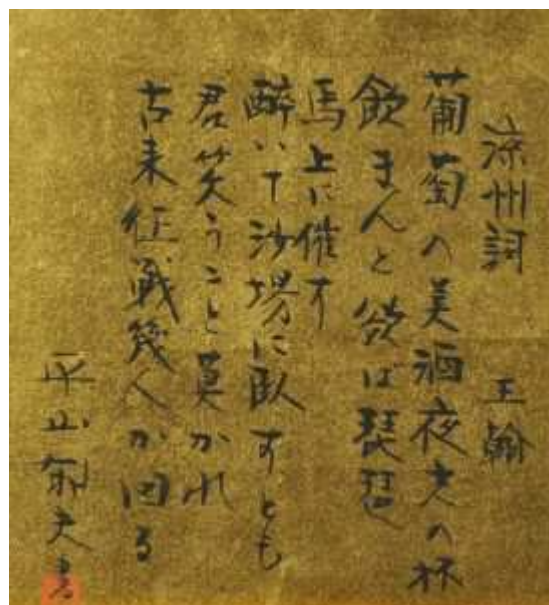 涼州詞 王翰
葡萄の美酒夜光の杯
飲まんと欲ば琵琶
馬上に催す
酔いて沙場に臥すとも
君笑うこと莫かれ
古来征戦幾人か回る
平山郁夫書